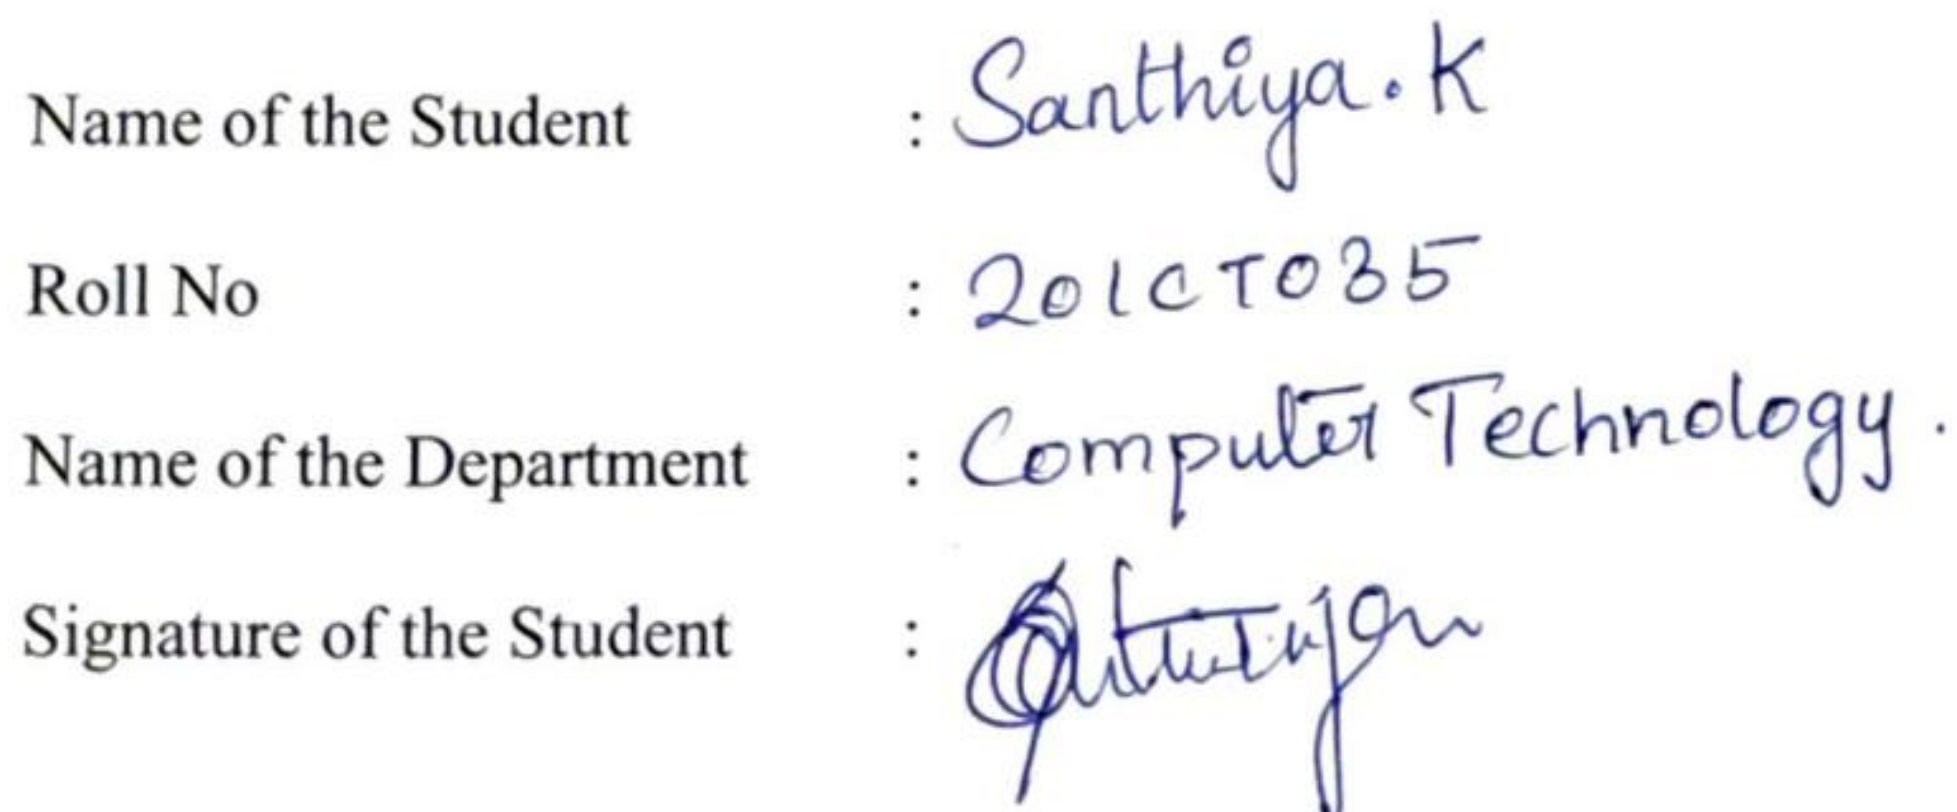 Name of the Student : Santhiya. K
Roll No : 201CT035
Name of the Department : Computer Technology.
Signature of the Student :